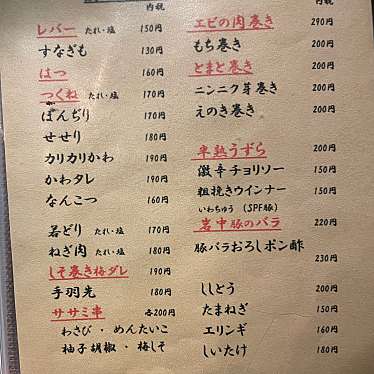 内税
レバー たれ・塩 150円
すなぎも 130円
はつ 160円
つくね たれ・塩 170円
ぼんぢり 170円
せせり 180円
カリカリかわ 190円
かわタレ 190円
なんこつ 160円
若どり たれ・塩 170円
ねぎ肉 たれ・塩 180円
しそ巻き梅ダレ 190円
手羽先 180円
ササミ串 各200円
わさび・めんたいこ
柚子胡椒・梅しそ
内税
エビの肉巻き 290円
もち巻き 200円
とまと巻き 200円
ニンニク芽巻き 200円
えのき巻き 200円
半熟うずら 200円
激辛チョリソー 150円
粗挽きウインナー 150円
いわちゅう (SPF豚)
岩中豚のバラ 220円
豚バラおろしポン酢
230円
ししとう 200円
たまねぎ 150円
エリンギ 160円
しいたけ 180円